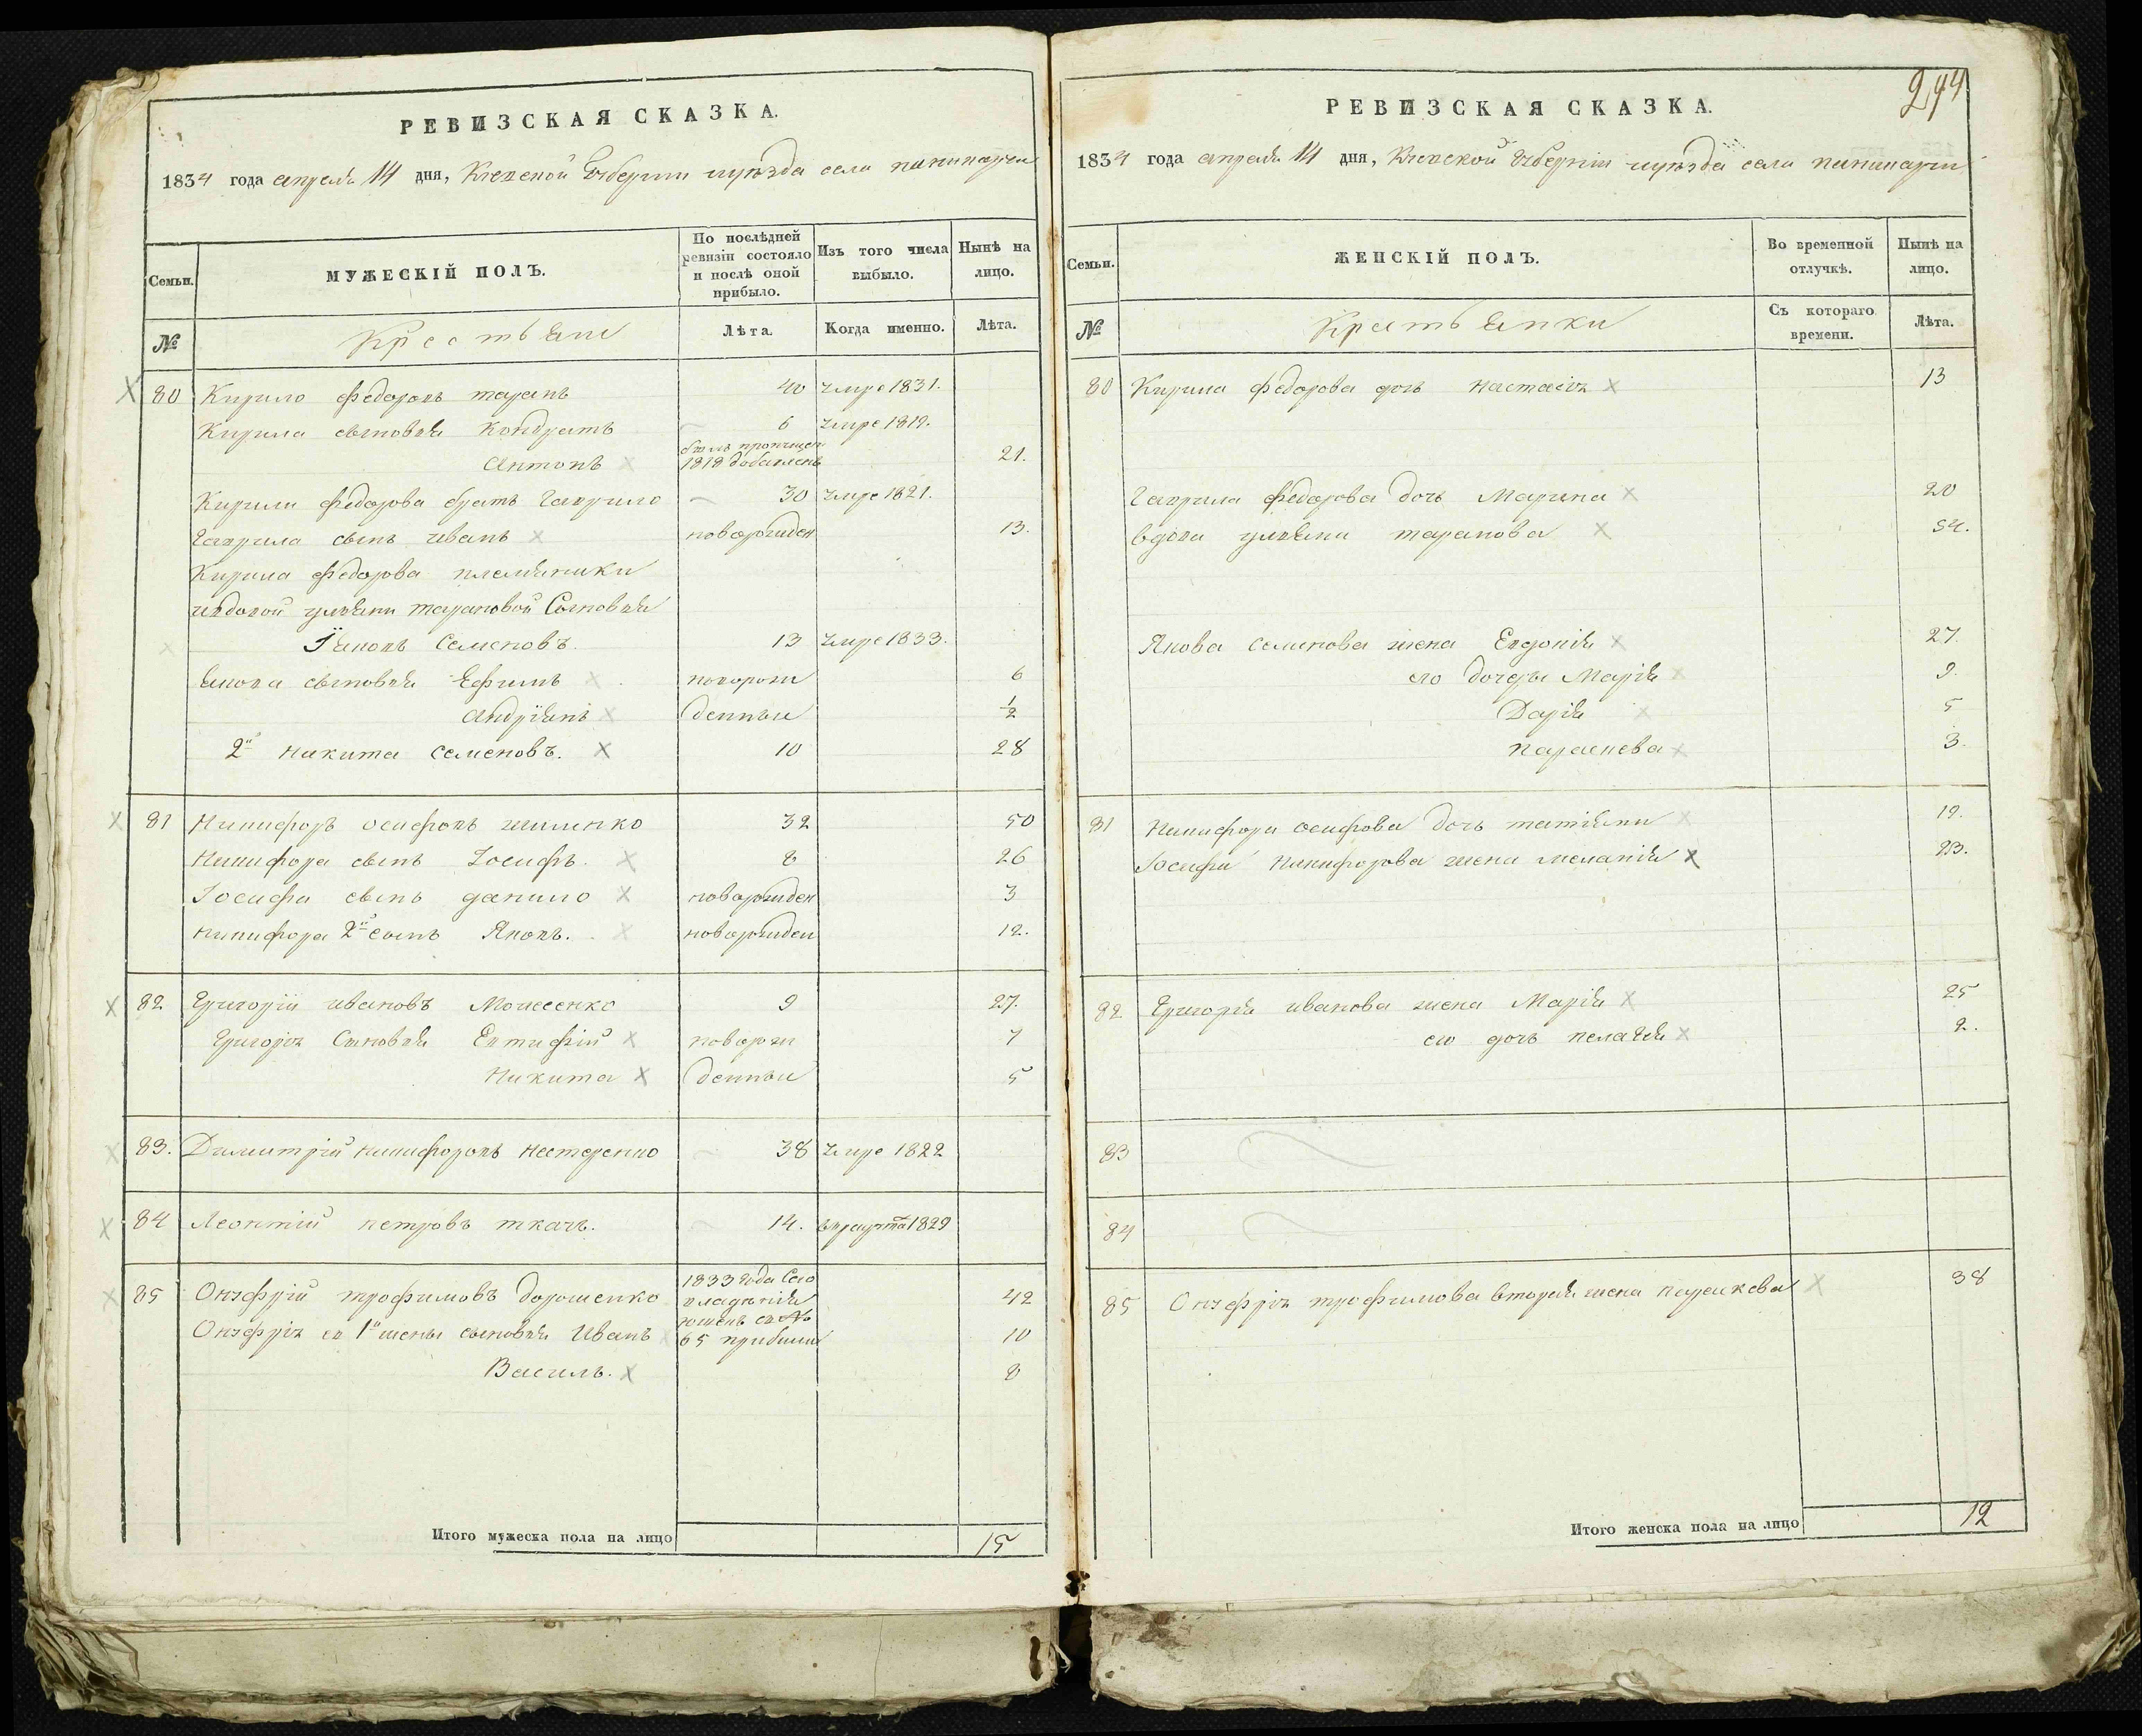 РЕВИЗСКАЯ СКАЗКА.
1834 года апреля 14 дня, Киевской Губернии иуѣзда села
Семьи.
МУЖЕСКІЙ ПОЛЪ.
По послѣдней ревизіи состояло и послѣ оной прибыло.
Изъ того числа выбыло.
Нынѣ на лицо.
№
Крестьяне
Лѣта.
Когда именно.
Лѣта.
80 Кирило Федоровъ таранъ 40 умре 1831.
Кирила сыновья Кондратъ 6 умре 1819.
Антонъ былъ пропущен 1818 добавленъ 21.
Кирили Федорова братъ Гаврило 30 умре 1821.
Гаврила сынъ иванъ новорожден 13.
Кирила Федорова племяники
ивдовой улияни тарановой Сыновья
Іяковъ Семеновъ. 13 умре 1833.
Якова сыновья Ефимъ новорож 6
Андріянъ денные ½
2й Никита Семеновъ. 10 28
81 Никифоръ осифовъ 32 50
Никифора сынъ Іосифъ. 8 26
Іосифа сынъ данило новорожден 3
Никифора 2й сынъ Яковъ. новорожден 12.
82 Григорій ивановъ Моисеенко 9 27.
Григорія Сыновья Евтифій новорож 7
Никита денные 5
83. Димитрій Никифоровъ Нестеренко 38 умре 1822
84 Леонтій петровъ ткачъ. 14. врекрута 1829
85 Онуфрій трофимовъ дорошенко 1833 года Сего владѣнія 42
Онуфрія съ 1й жены сыновья Иванъ 65 прибыли 10
Василь. 8
Итого мужеска пола на лицо 15
244
РЕВИЗСКАЯ СКАЗКА.
1834 года апреля 14 дня, Киевской Губерніи иуѣзда села
Семьи.
ЖЕНСКІЙ ПОЛЪ.
Во временной отлучкѣ.
Нынѣ на лицо.
№
Крестьянки
Съ котораго времени.
Лѣта.
80 Кирила Федорова дочь Настасія 13
Гаврила Федорова дочь Марина 20
вдова улияни таранова 54.
Якова Семенова жена Евдокія 27.
его дочеры Марія 9.
Дарія 5
параскева 3.
81 Никифора осифова дочь татіяни 19.
Іосифа Никифорова жена меланія 23.
82 Григорія иванова жена Марія 25
его дочь пелагія 2.
83
84
85 Онуфрія трофимова вторая жена параскева 38
Итого женска пола на лицо 12